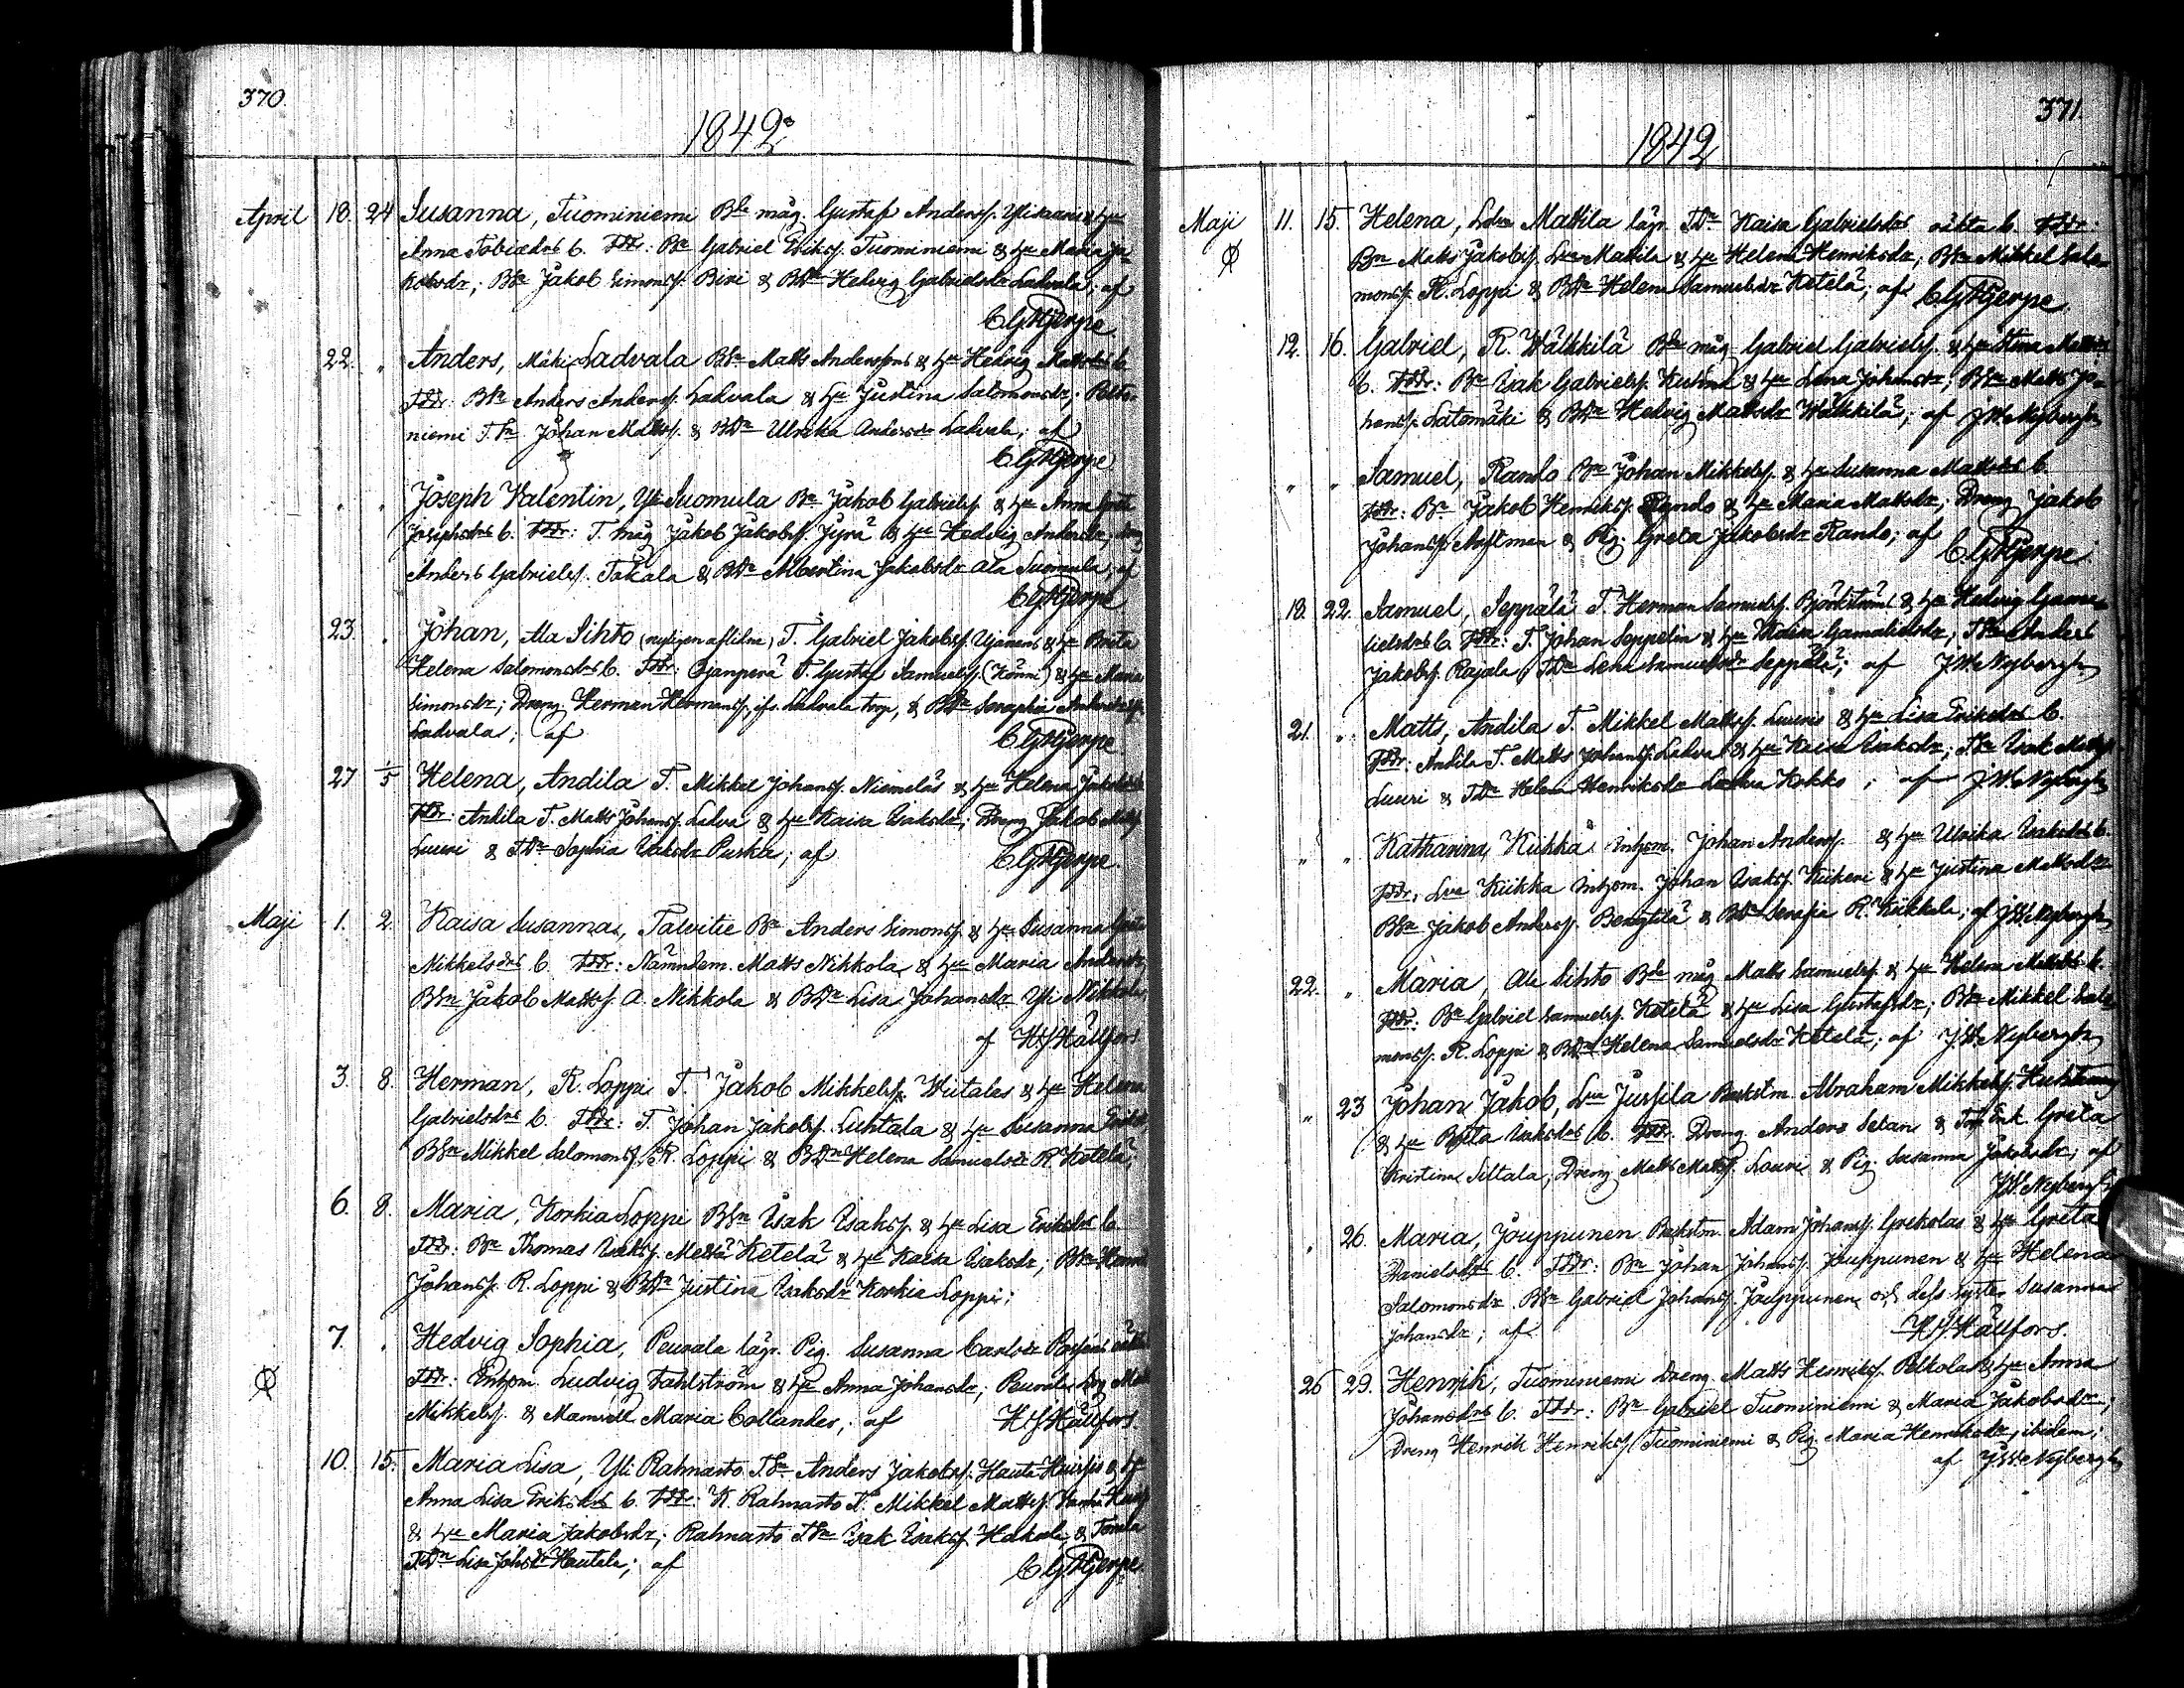 370.
1842
April 18. 24 Susanna, Tuominiemi Bde måg. Gustaf Anderss. & hu
Anna b. Fddr: Bn Gabriel Erikss. Tuominiemi & hu Maria Ja-
kobsdr; BSn Jakob Simonss. & BDr Hedvig Gabrielsdr Ladvala; af
CGHjerpe
22. " Anders, Mäki Ladvala BSn Matts Anderssons & hu Hedvig Mattsdrs b.
Fddr: BSn Anders Anderss. Ladvala & hu Justina Salomonsdr;
niemi T. Sn. Johan Mattss. & BDr Ulrika Andersdr Ladvala; af
CGHjerpe
" " Joseph Valentin, Yli Suomula Bn Jakob Gabrielss. & hu Anna Greta
Josephsdrs b. Fddr: T. måg Jakob Jakobss. Jyrä & hu Hedvig Andersdr;
Anders Gabrielss. Takala & BDr Albertina Jakobsdr Ala Suomula; af
CGHjerpe
23. . Johan, Ala Sihto (nyligen aflidne) T. Gabriel Jakobss. & hu Brita
Helena Salomonsdrs b. Fddr: T. Gustaf Samuelss. (Könni) & hu Maria
Simonsdr; Dreng Herman Hermanss., ifr. Ladvala torp, & BDr Seraphia
Ladvala; af CGHjerpe
27 1/5 Helena, Andila T. Mikkel Johanss. Niemeläs & hu Helena
Fddr: Andila T. Matts Johanss. Ladva & hu Kaisa Isaksdr; Dreng Jakob
Luuri & TDr Sophia Isaksdr Puska; af CGHjerpe.
Maji 1. 2. Kaisa Susanna, Talvitie Bn Anders Simonss. & hu Susanna Greta
Mikkelsdrs b. Fddr: Nämndem. Matts Nikkola & hu Maria Andersdr;
BSn Jakob Mattss. A. Nikkola & BDr Lisa Johansdr Yli Nikkola;
af HJHällfors
3. 8. Herman, R. Loppi T. Jakob Mikkelss. Wiitalas & hu Helena
Gabrielsdrs b. Fddr: T. Johan Jakobss. Luhtala & hu Susanna
BSn Mikkel Salomonss. R. Loppi & BDr Helena Samuelsdr R. Ketelä;
6. 8. Maria, Korkia Loppi BSn Isak Isakss. & hu Lisa Eriksdrs b.
Fddr: Bn Thomas Isakss. Ketelä & hu Kaisa Isaksdr; BSn
Johanss. R. Loppi & BDr Justina Isaksdr Korkia Loppi;
7. . Hedvig Sophia, Peurala lägr. Pig. Susanna Carlsdr
Ø Fddr: Inhom. Ludvig Fahlström & hu Anna Johansdr; Peurala
Mikkelss. & Mamsell Maria Collander; af HJHällfors
10. 15. Maria Lisa, Yli Rahnasto TSn Anders Jakobss. & hu
Anna Lisa Eriksdrs b. Fddr: K. Rahnasto T. Mikkel Mattss.
& hu Maria Jakobsdr; Rahnasto TSn Isak Isakss. Hakala & Tomla
TDr Lisa Johsdr Hautala; af CGHjerpe
371.
1842
Maji 11. 15. Helena, Mattila lägr. TDr Kaisa Gabrielsdrs oäkta b. Fddr:
Ø Bn Matts Jakobss. Mattila & hu Helena Henriksdr; BSn Mikkel Salo-
monss. R. Loppi & BDr Helena Samuelsdr Ketelä; af CGHjerpe.
12. 16. Gabriel, R. Wälkkilä Bde måg Gabriel Gabrielss. & hu Stina
b. Fddr: Bn Isak Gabrielss. & hu Lena Johansdr; BSn Matts Jo-
hanss. Latomäki & BDr Hedvig Mattsdr Wälkkilä; af JWNybergh
" " Samuel, Rando Bn Johan Mikkelss. & hu Susanna Mattsdrs b.
Fddr: Bn Jakob Henrikss. Rando & hu Maria Mattsdr; Dreng Jakob
Johanss. & Pig. Greta Jakobsdr Rando; af CGHjerpe.
18. 22. Samuel, Seppälä T. Herman Samuelss. Björkströms & hu Hedvig Gama-
lielsdrs b. Fddr: T. Johan Seppelin & hu Kaisa Gamalielsdr; TSn Anders
Jakobss. Rajala & TDr Lena Samuelsdr Seppälä; af JWNybergh
21. " Matts, Andila T. Mikkel Mattss. Luuris & hu Lisa Eriksdrs b.
Fddr: Andila T. Matts Johanss. Ladva & hu Kaisa Isaksdr; TSn Isak Mattss.
Luuri & TDr Helena Henriksdr Kokko; af JWNybergh
" " Katharina, Kiikka Inhom. Johan Anderss. & hu Ulrika Isaksdrs b.
Fddr, Kiikka Inhom. Johan Isakss. & hu Justina Mattsdr
BSn Jakob Anderss. Bengtilä & BDr Serafia R. Kiikkala; af JWNybergh
22. " Maria, Ala Sihto Bde måg Matts Samuelss. & hu Helena Mattsdrs b.
Fddr: Bn Gabriel Samuelss. Ketelä & hu Lisa Gustafsdr; BSn Mikkel Salo-
monss. R. Loppi & BDr Helena Samuelsdr Ketelä; af JWNybergh
" 23 Johan Jakob, Jussila Backstm. Abraham Mikkelss.
& hu Brita Isaksdrs b. Fddr. Dreng Anders & Greta
Kristina Siltala; Dreng Matts Mattss. Louri & Pig. Susanna Jakobsdr; af
JWNybergh
. 26. Maria, Jouppunen Backstm. Adam Johanss. Grekolas & hu Greta
Danielsdrs b. Fddr: Bn Johan Johanss. Jouppunen & hu Helena
Salomonsdr BSn Gabriel Johanss. Jouppunen och dess syster Susanna
Johansdr; af HJHällfors.
26 29. Henrik, Tuominiemi Dreng Matts Henrikss. Pelkola & hu Anna
Johansdrs b. Fddr: Bn Gabriel Tuominiemi & Maria Jakobsdr;
Dreng Henrik Henrikss. Tuominiemi & Pig. Maria Henriksdr, ibidem;
af JWNybergh